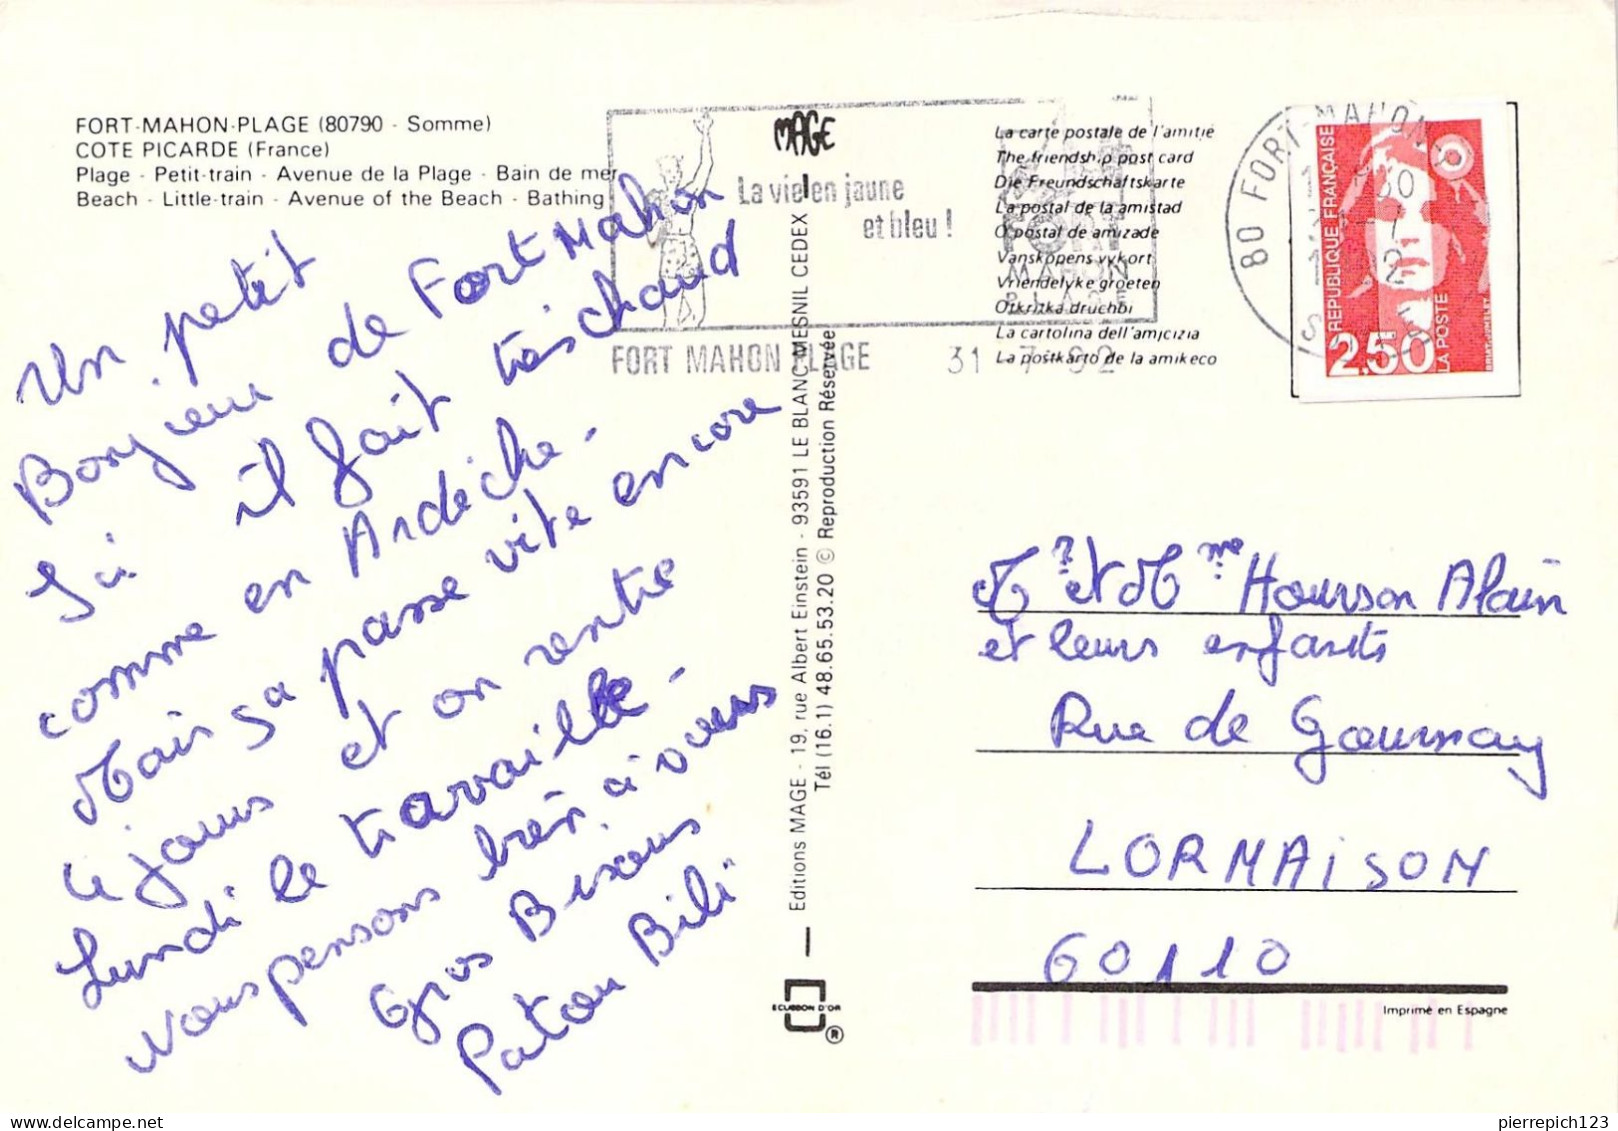 FORT-MAHON-PLAGE (80790 - Somme)
COTE PICARDE (France)
Plage - Petit-train - Avenue de la Plage - Bain de mer
Beach - Little-train - Avenue of the Beach - Bathing
Un petit
Bonjour de Fort Mahon
Ici il fait très chaud
comme en Ardèche.
Mais sa passe vite encore
ce jours et on rentre
Lundi le travaille.
Nous pensons bien à vous
Gros Bisous
Patou Bili
MAGE
La vie en jaune
et bleu !
FORT
MAHON
PLAGE
FORT MAHON PLAGE 31 - 7 - 92
La carte postale de l'amitie
The friendship post card
Die Freundschaftskarte
La postal de la amistad
O postal de amizade
Vanskopens vykort
Vriendelyke groeten
Otkritka druchbi
La cartolina dell'amicizia
La postkarto de la amikeco
80 FORT-MAHON
REPUBLIQUE FRANÇAISE
2,50
LA POSTE
Editions MAGE - 19, rue Albert Einstein - 93591 LE BLANC MESNIL CEDEX
Tél (16.1) 48.65.53.20 © Reproduction Réservée
ECUSSON D'OR
®
Mr et Mme Hourson Alain
et leurs enfants
Rue de Gournay
LORMAISON
60110
Imprimé en Espagne
pierrepich123